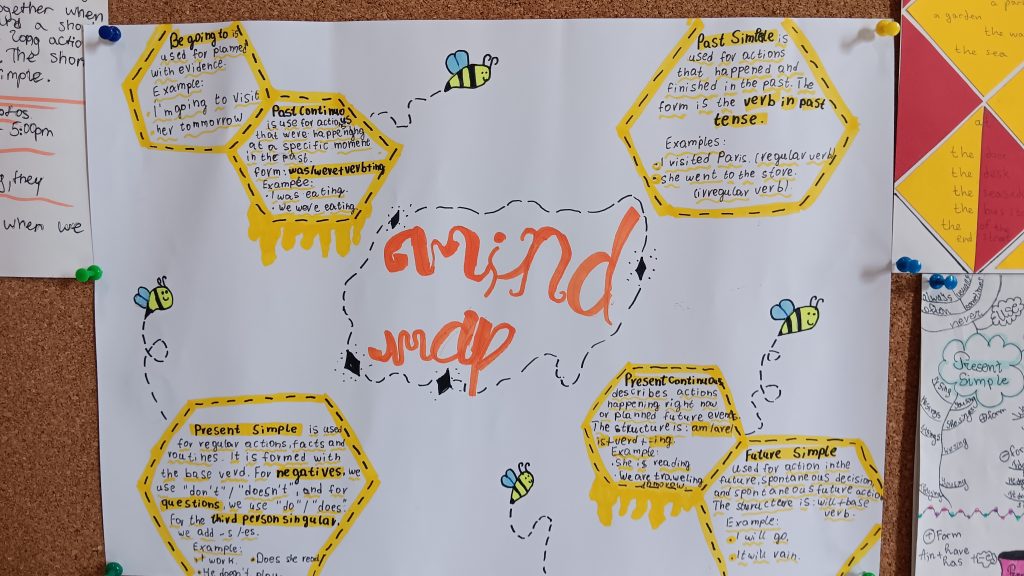 ogether when
long actio
The shor
imple.
otos
5:00pm
, they
when we
Be going to is
used for planned
with evidence.
Example:
I'm going to visit
her tommorow
Past Continuo
is use for actions
that were happening
at a specific moment
in the past.
Form: was/were+verb+ing
Example:
• I was eating.
• We were eating.
Past Simple is
used for actions
that happened and
finished in the past. The
form is the verb in past
tense.
Examples:
• I visited Paris. (regular verb)
• she went to the store.
(irregular verb)
mind
map
Present Simple is used
for regular actions, facts and
routines. It is formed with
the base verd. For negatives, we
use "don't"/"doesn't", and for
questions, we use "do"/"does".
For the third person singular,
we add -s/-es.
Example:
• I work.
• Does she read
• He doesn't play
Present Continuous
describes actions
happening right now
or planned future event
The structure is: am/are/
is+verd+-ing.
Example:
• She is reading
• We are traveling
tomorow
Future Simple
used for action in the
future, spontaneous decision
and spontaneous future action
The structure is: will+base
verb.
Example:
• I will go.
• It will rain.
a par
a garden
the wa
the sea
at
the door
the desk
the seaside
the bus st
the end of the street
always
often
never
Present
Simple
Form
have
has